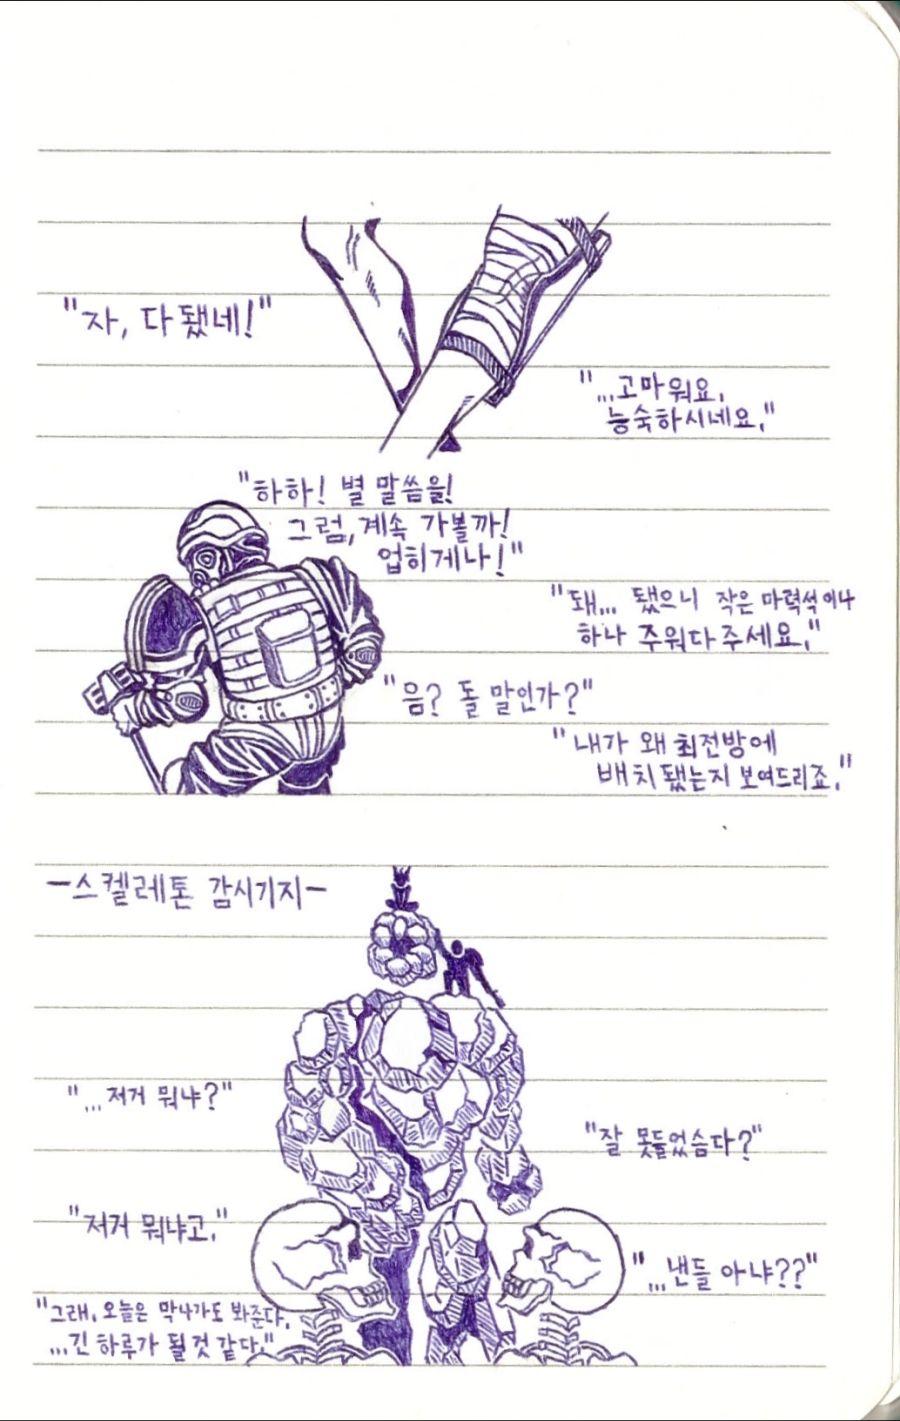 "자, 다 됐네!"
"...고마워요.
능숙하시네요."
"하하! 별 말씀을!
그럼, 계속 가볼까!
업히게나!"
"돼... 됐으니 작은 마력석이나
하나 주워다주세요."
"음? 돌 말인가?"
"내가 왜 최전방에
배치됐는지 보여드리죠."
-스켈레톤 감시기지-
"...저거 뭐냐?"
"잘 못들었슴다?"
"저거 뭐냐고."
"...낸들 아냐??"
"그래, 오늘은 막나가도 봐준다.
...긴 하루가 될 것 같다."